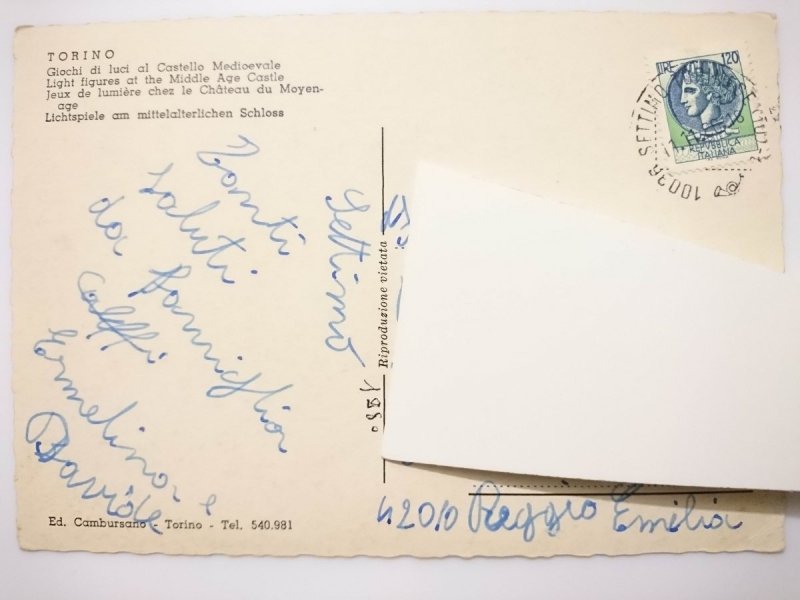 TORINO
Giochi di luci al Castello Medioevale
Light figures at the Middle Age Castle
Jeux de lumière chez le Château du Moyen-
age
Lichtspiele am mittelalterlichen Schloss
LIRE 120
REPVBBLICA
ITALIANA
10036 SETTIMO
Tanti
saluti
da Famiglia
Caleffi
Ermelina e
Davide
Settimo
Riproduzione vietata
1980
42010 Reggio Emilia
Ed. Cambursano - Torino - Tel. 540.981